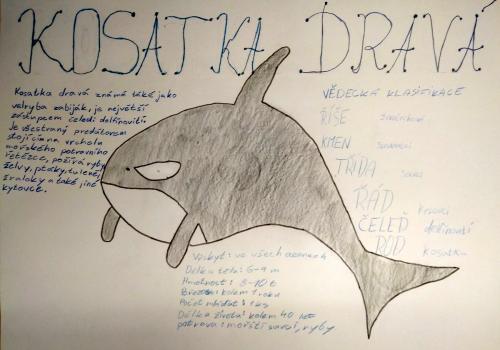 KOSATKA DRAVÁ
Kosatka dravá známá také jako
velryba zabiják, je největší
zástupcem čeledi delfínovití
Je všestraný predátorem
stojícím na vrcholu
mořského potravního
řetězce, požívá ryby
želvy, ptáky, tuleně,
žraloky a také jiné
kytovce.
VĚDECKÁ KLASIFIKACE
ŘÍŠE živočichové
KMEN strunatci
TŘÍDA savci
ŘÁD kytovci
ČELEĎ delfínovití
ROD kosatka
Výskyt: ve všech oceánech
Délka těla: 6-9 m
Hmotnost: 3-10 t
Březost: kolem 1 roku
Počet mláďat: 1 ks
Délka života: kolem 40 let
potrava: mořští savci, ryby